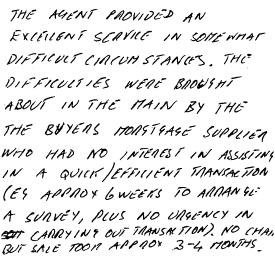 THE AGENT PROVIDED AN
EXCELLENT SERVICE IN SOMEWHAT
DIFFICULT CIRCUMSTANCES. THE
DIFFICULTIES WERE BROUGHT
ABOUT IN THE MAIN BY THE
THE BUYERS MORGTGAGE SUPPLIER
WHO HAD NO INTEREST IN ASSISTING
IN A QUICK/EFFICIENT TRANSACTION
(EG APPROX 6 WEEKS TO ARRANGE
A SURVEY, PLUS NO URGENCY IN
CARRYING OUT TRANSACTION). NO CHAIN
BUT SALE TOOK APPROX 3-4 MONTHS.